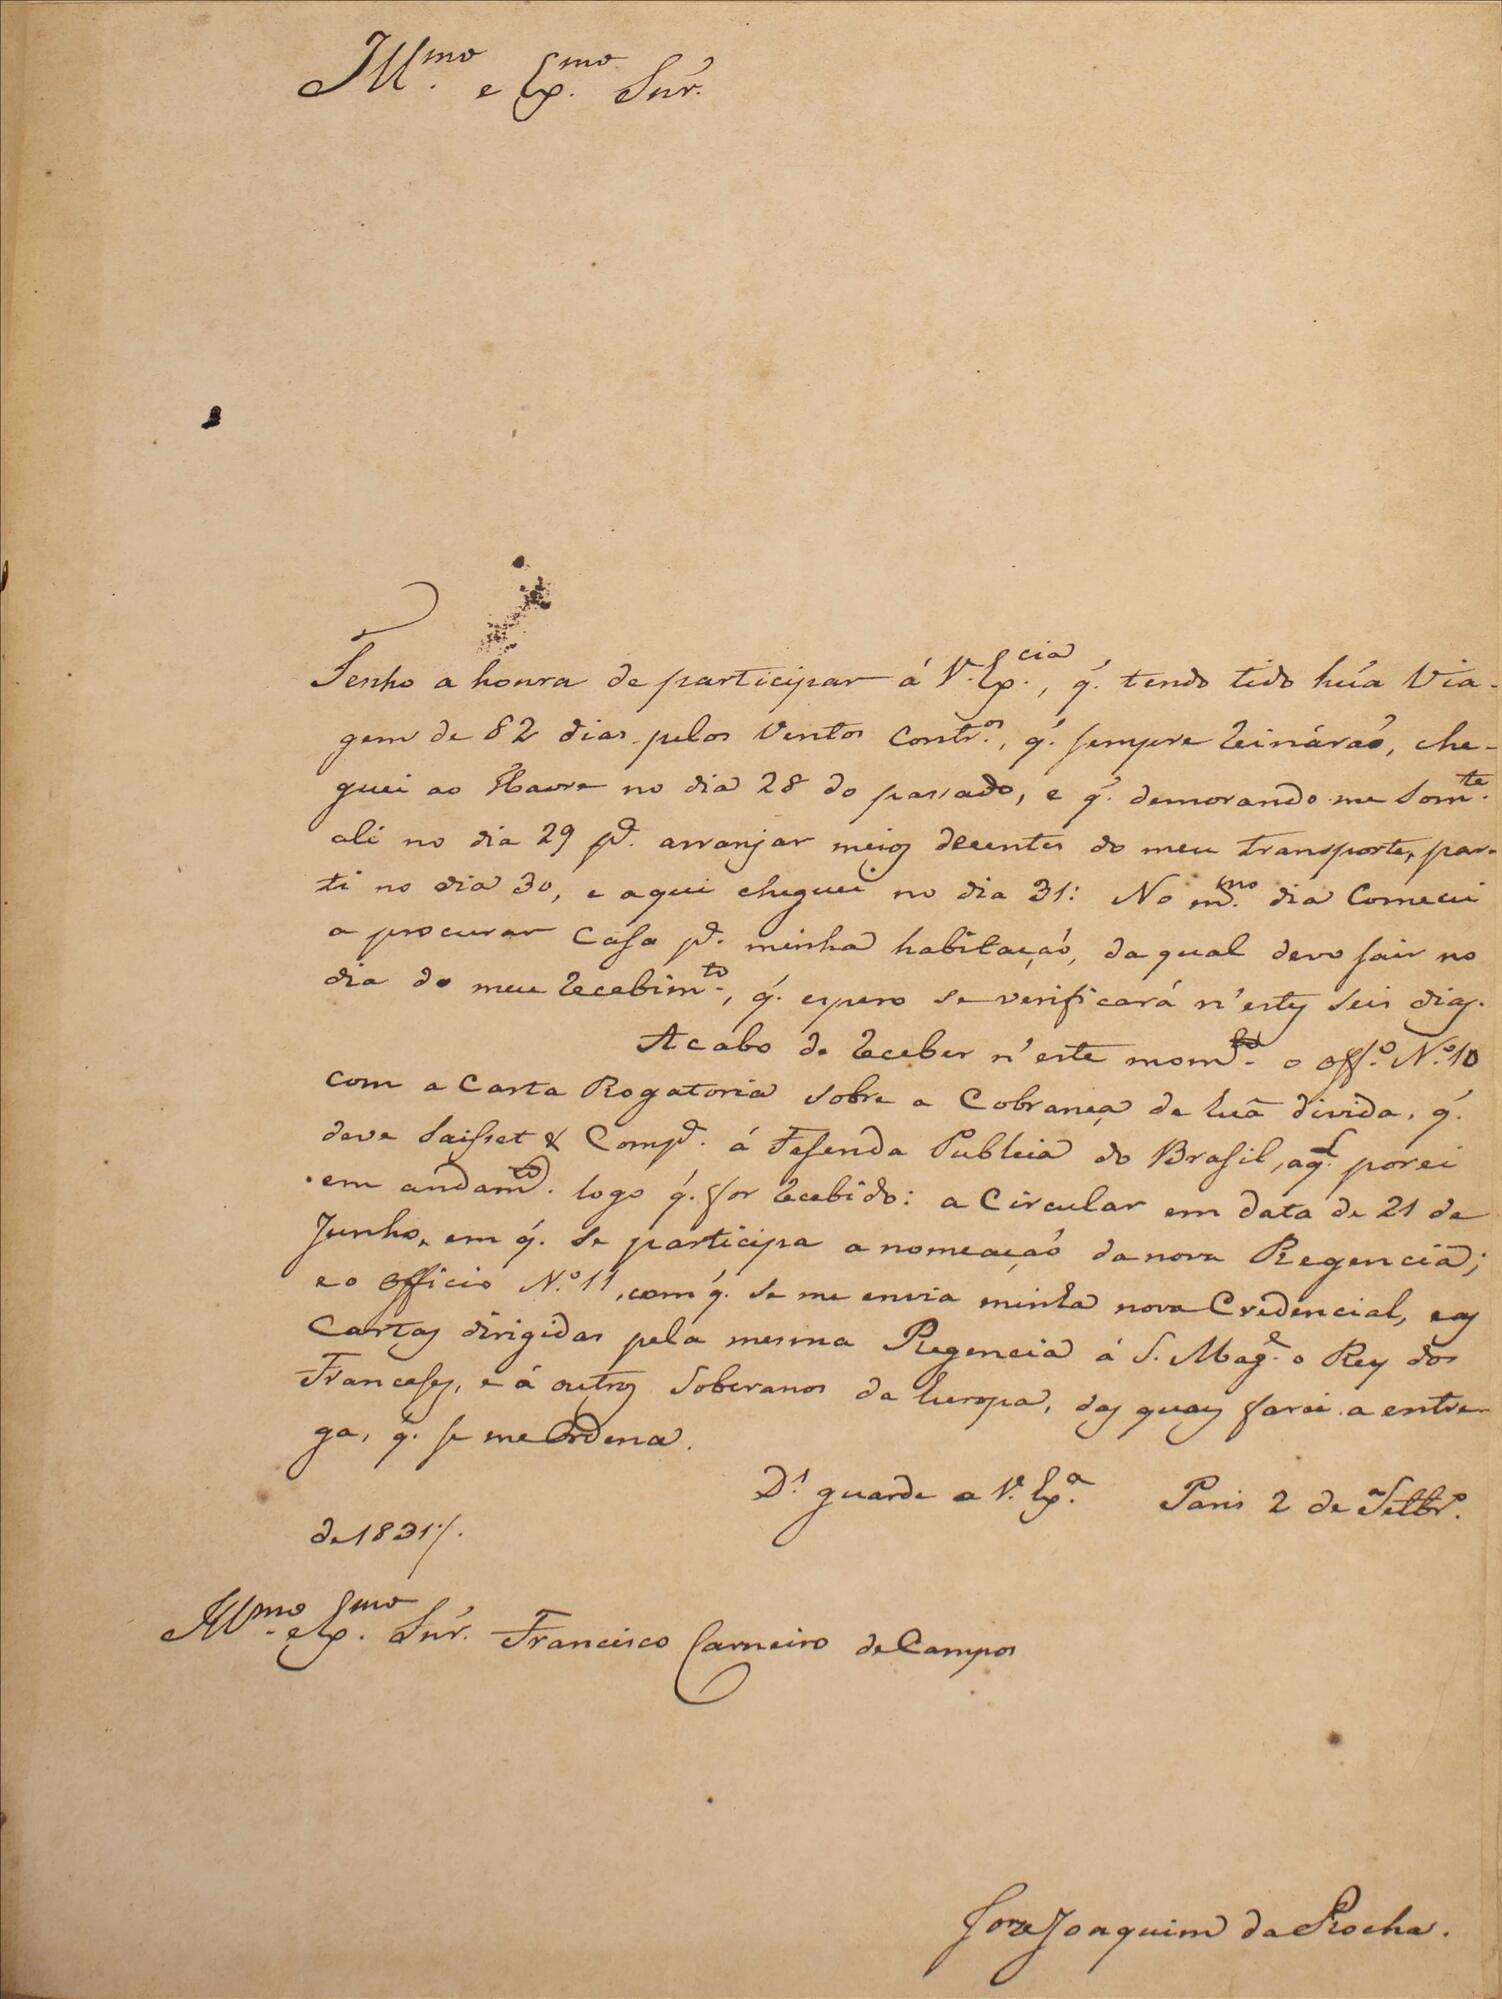 Ill.mo e Ex.mo Snr.
Tenho a honra de participar á V. Ex.cia, q. tendo tido húa Via-
gem de 82 dias pelos Ventos Contr.os, q. sempre reináraõ, che-
guei ao Havre no dia 28 do passado, e q. demorando me Som.te
ali no dia 29 p.a arranjar meios decentes do meu transporte, par-
ti no dia 30, e aqui cheguei no dia 31: No m.mo dia Comecei
a procurar Casa p.a minha habitaçaõ, da qual devo sair no
dia do meu recebim.to, q. espero se verificará n'estes seis dias.
Acabo de receber n'este mom.to o Off.o N.o 10
com a Carta Rogatoria sobre a Cobrança de huã divida, q.
deve Saisset & Comp.a á Fasenda Publica do Brasil, aq.l porei
em andam.to logo q. for recebido: a Circular em data de 21 de
Junho, em q. se participa a nomeaçaõ da nova Regencia;
e o Officio N.o 11, com q. se me envia minha nova Credencial, e as
Cartas dirigidas pela mesma Regencia á S. Mag.e o Rey dos
Franceses, e á outros Soberanos da Europa, das quaes farei a entre-
ga, q. se me Ordena.
D.s guarde a V. Ex.a Paris 2 de Setbr.o
de 1831/.
Ill.mo e Ex.mo Snr. Francisco Carneiro de Campos
Joze Joaquim da Rocha.